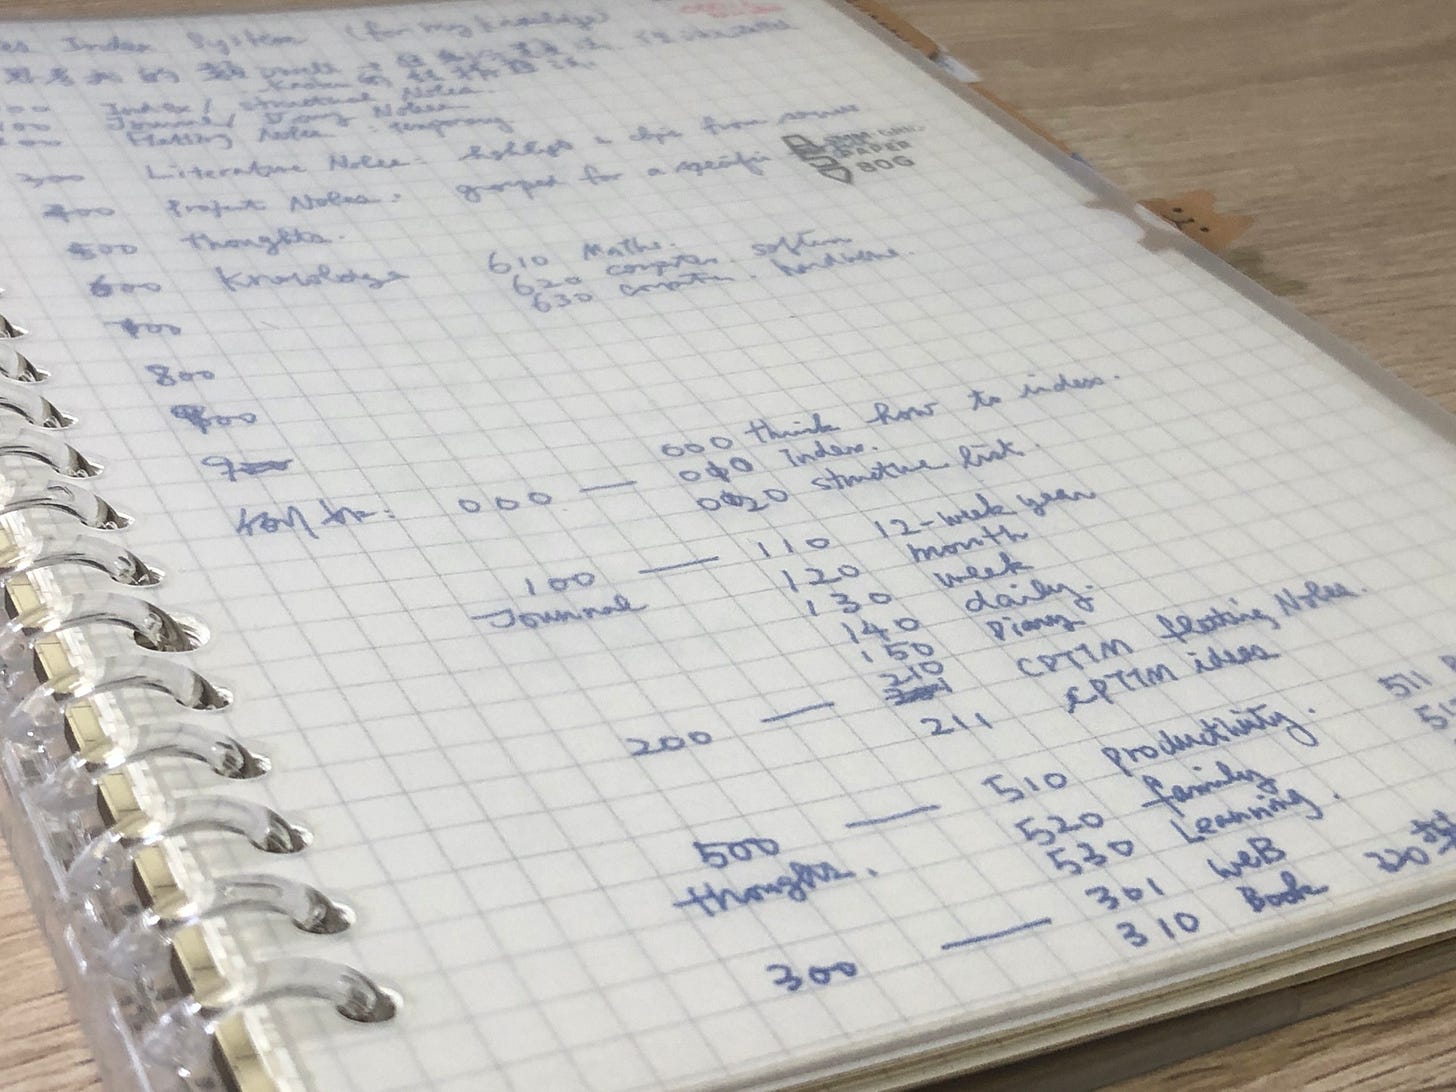 Index System (for my knowledge)
的
000 Index / structure Notes.
100 Journal / Diary Notes
200 Fleeting Notes. temporary
300 Literature Notes. highlight & clips from source
400 Project Notes. grouped for a specific
PAPER
BOG
500 thoughts.
600 Knowledge 610 Maths.
620 computer software
630 computer hardware.
700
800
900
000 — 000 think how to index.
010 Index.
020 structure list.
100 — 110 12-week year
Journal 120 month
130 week
140 daily.
150 Diary
200 — 210 CPTIM fleeting Notes.
211 CPTIM ideas
500 — 510 productivity. 511
thoughts. 520 family
530 Learning.
300 — 301 WeB
310 Book 320